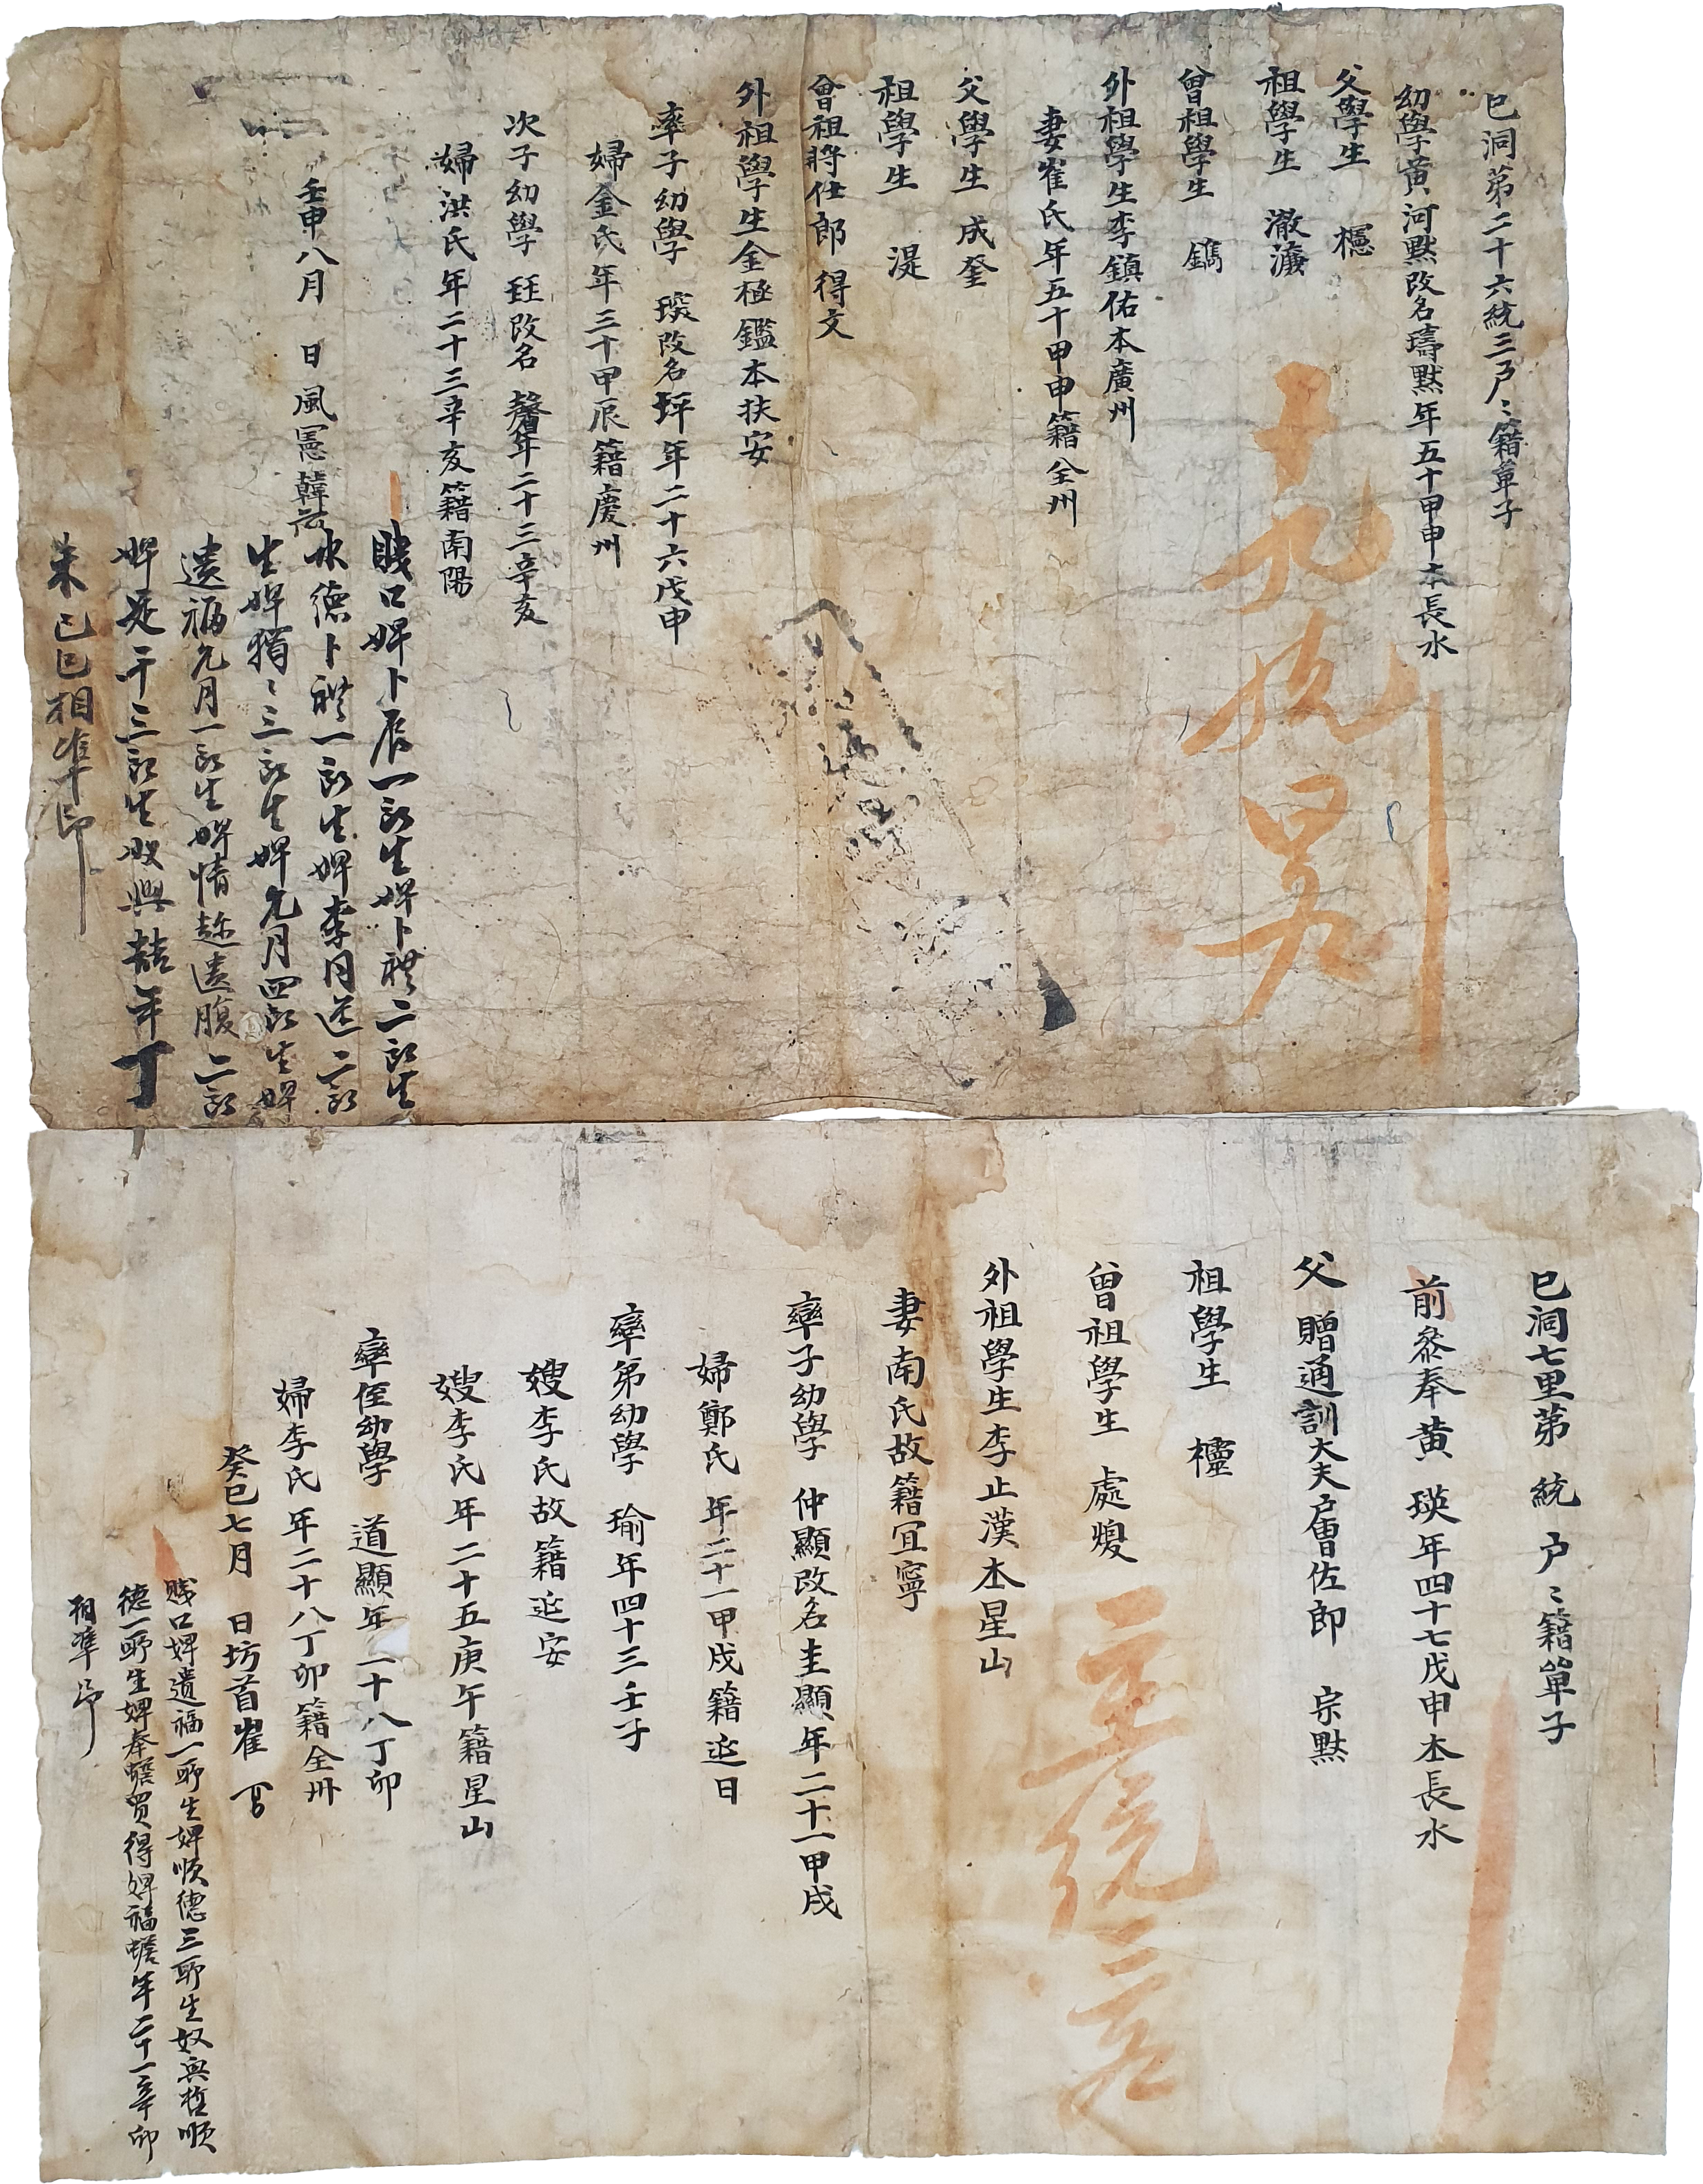 巳洞第二十六統三戶〻籍單子
幼學黃河默改名璹默年五十甲申本長水
父學生 櫶
祖學生 澈濩
曾祖學生 鐫
外祖學生李鎮佑本廣州
妻崔氏年五十甲申籍全州
父學生 成奎
祖學生 湜
曾祖將仕郎得文
外祖學生金極鑑本扶安
率子幼學 瑛改名坪年二十六戊申
婦金氏年三十甲辰籍慶州
次子幼學 珏改名馨年二十三辛亥
婦洪氏年二十三辛亥籍南陽
壬申八月 日風憲韓
賤口婢卜辰一所生婢卜禮二所生
德卜禮一所生婢季月 二所
生婢 〻三所生婢九月四所生婢
遺福九月一所生婢情 遺腹二所
婢 千三所生奴興喆年丁
未己巳相準印
巳洞七里第 統 戶〻籍單子
前參奉黃 瑛年四十七戊申本長水
父 贈通訓大夫戶曹佐郎 宗默
祖學生 櫶
曾祖學生 處煥
外祖學生李止漢本星山
妻南氏故籍宜寧
率子幼學 仲顯改名圭顯年二十一甲戌
婦鄭氏 年二十一甲戌籍延日
率弟幼學 瑜年四十三壬子
嫂李氏故籍延安
嫂李氏年二十五庚午籍星山
率侄幼學 道顯年二十八丁卯
婦李氏年二十八丁卯籍全州
癸巳七月 日坊首崔
賤口婢遺福一所生婢順德三所生奴興哲順
德一所生婢奉蟾買得婢福蟾年二十一辛卯
相準印